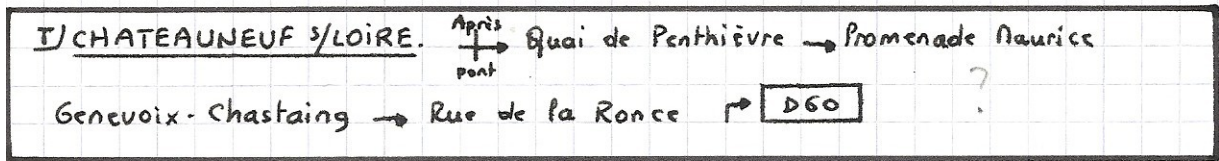 I/ CHATEAUNEUF S/LOIRE. Après pont → Quai de Penthièvre → Promenade Maurice
?
Genevoix - Chastaing → Rue de la Ronce ↱ D60